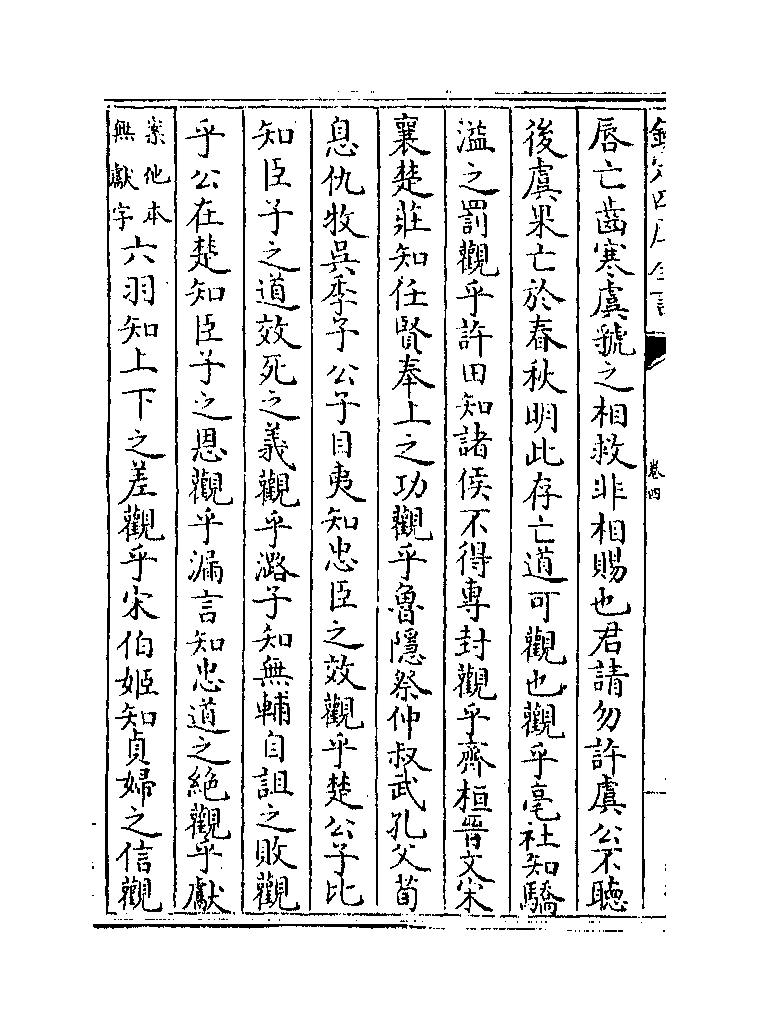 卷四
唇亡齒寒虞虢之相救非相賜也君請勿許虞公不聽
後虞果亡於春秋明此存亡道可觀也觀乎亳社知驕
溢之罰觀乎許田知諸侯不得專封觀乎齊桓晉文宋
襄楚莊知任賢奉上之功觀乎魯隱祭仲叔武孔父荀
息仇牧吳季子公子目夷知忠臣之效觀乎楚公子比
知臣子之道效死之義觀乎潞子知無輔自詛之敗觀
乎公在楚知臣子之恩觀乎漏言知忠道之絶觀乎獻
案他本無獻字六羽知上下之差觀乎宋伯姬知貞婦之信觀